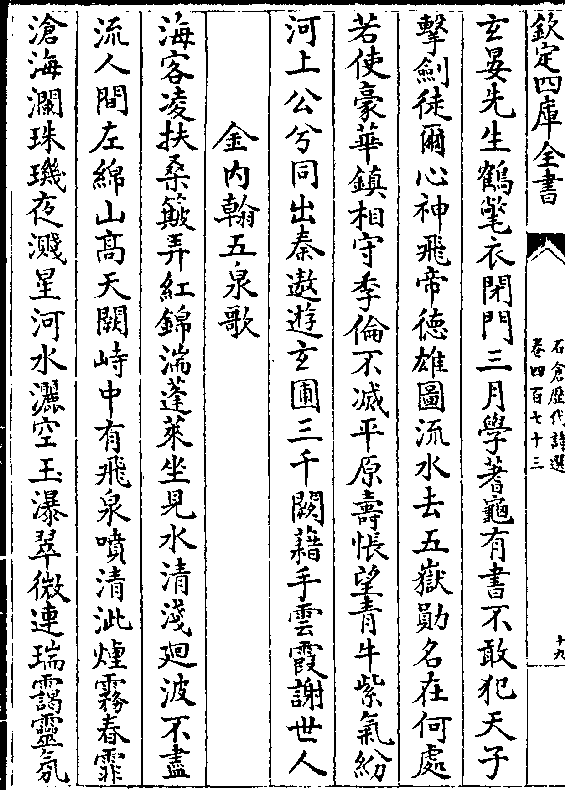 欽定四庫全書
石倉歷代詩選
卷四百七十三
十九
玄晏先生鶴氅衣閉門三月學蓍龜有書不敢犯天子
擊劍徒爾心神飛帝德雄圖流水去五嶽勛名在何處
若使豪華鎮相守季倫不減平原壽悵望青牛紫氣紛
河上公兮同出秦遨遊玄圃三千闕藉手雲霞謝世人
金内翰五泉歌
海客凌扶桑簸弄紅錦湍蓬萊坐見水清淺廻波不盡
流人間左綿山高天闕峙中有飛泉噴清泚煙霧春霏
滄海瀾珠璣夜濺星河水灑空玉瀑翠微連瑞靄靈氛